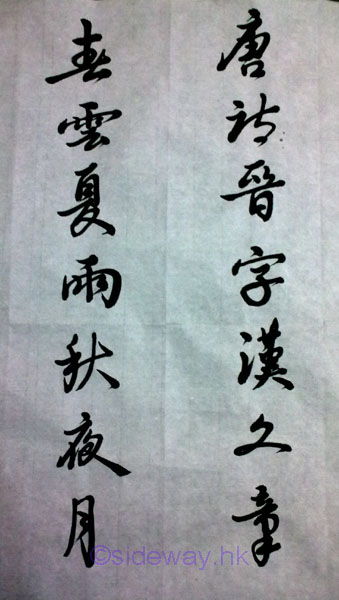 唐詩晉字漢文章
春雲夏雨秋夜月
©sideway.hk